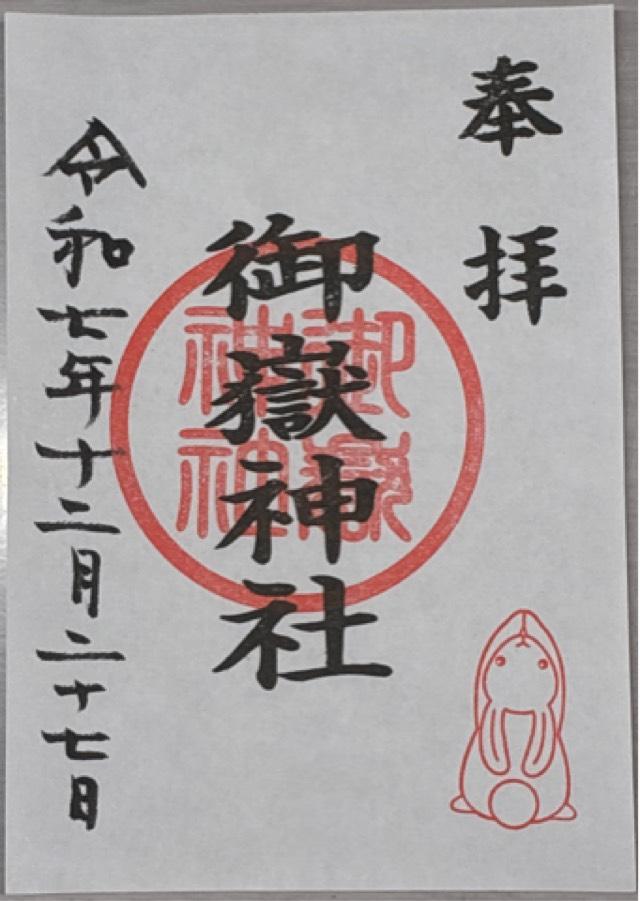 奉拝
御嶽神社
御嶽神社
令和七年十二月二十七日